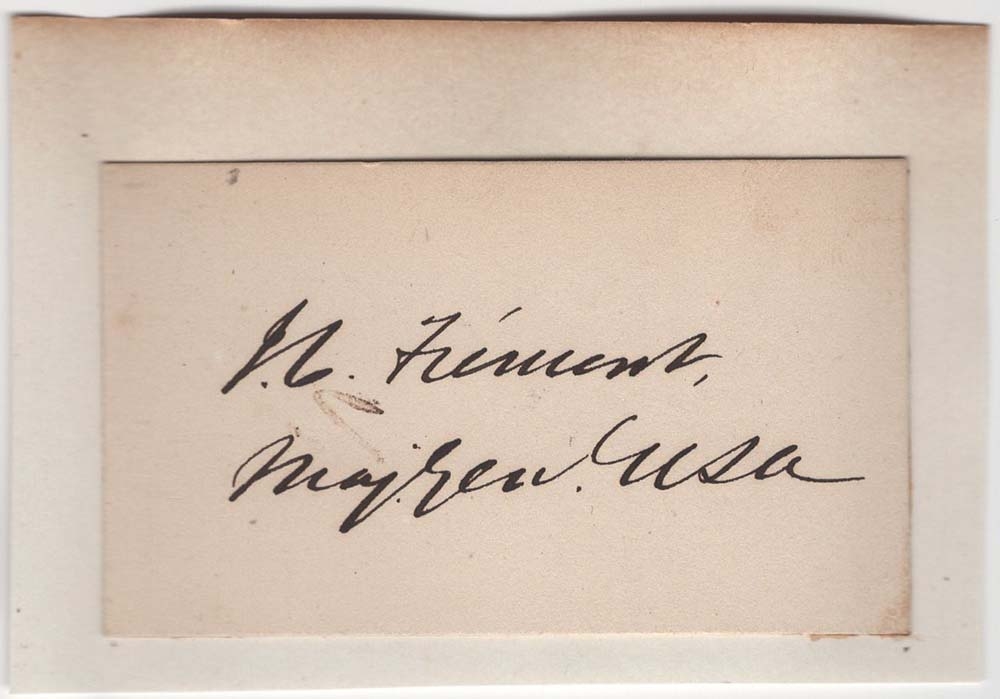 J. C. Frémont,
Maj. Gen. USA